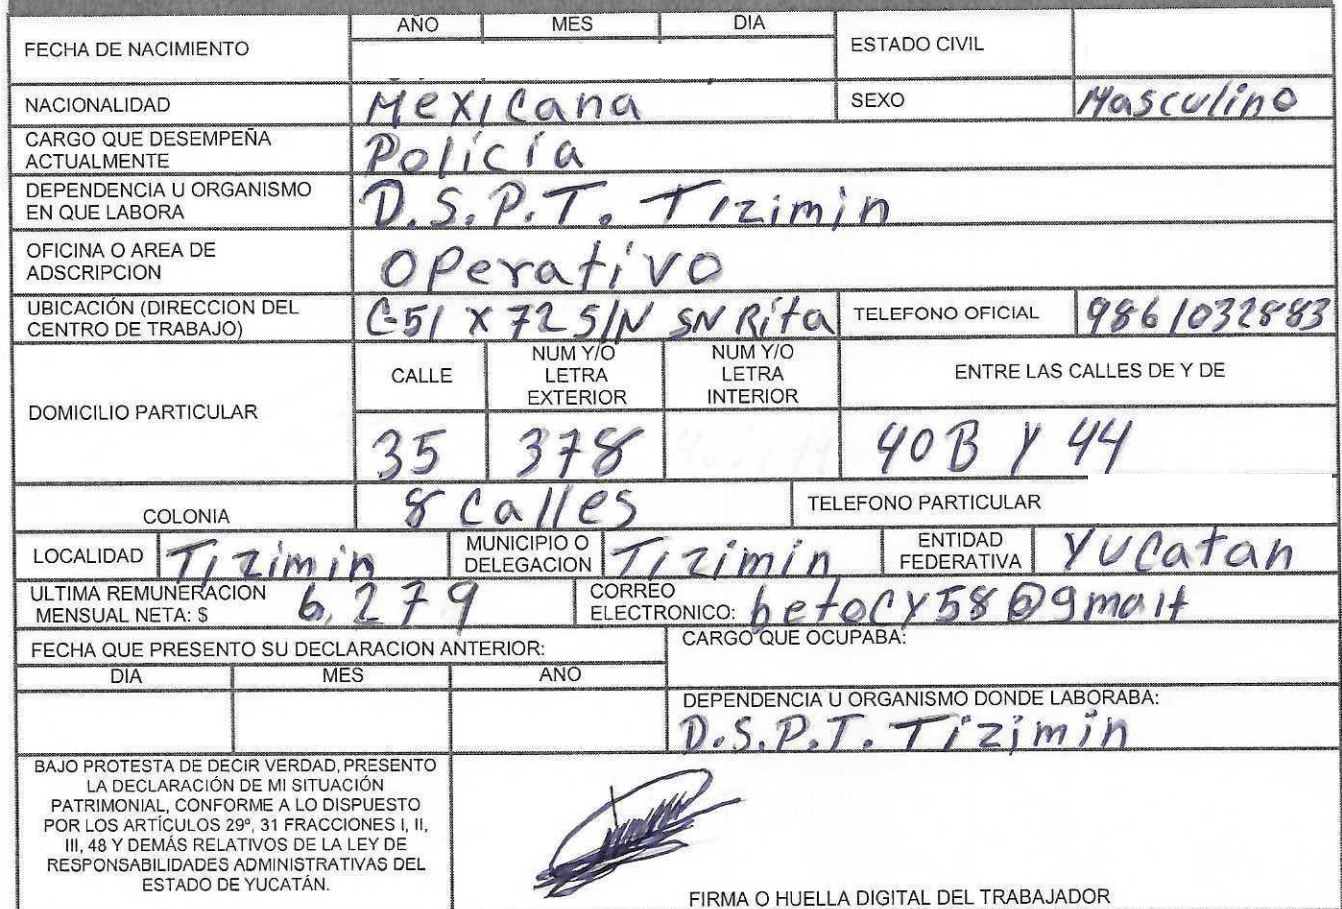 AÑO MES DIA
FECHA DE NACIMIENTO ESTADO CIVIL
NACIONALIDAD Mexicana SEXO Masculino
CARGO QUE DESEMPEÑA
ACTUALMENTE Policía
DEPENDENCIA U ORGANISMO
EN QUE LABORA D.S.P.T. Tizimin
OFICINA O AREA DE
ADSCRIPCION Operativo
UBICACIÓN (DIRECCION DEL
CENTRO DE TRABAJO) C-51 X 72 S/N SN Rita TELEFONO OFICIAL 9861032883
DOMICILIO PARTICULAR
CALLE
NUM Y/O
LETRA
EXTERIOR
NUM Y/O
LETRA
INTERIOR
ENTRE LAS CALLES DE Y DE
35 378 40B Y 44
COLONIA 8 Calles TELEFONO PARTICULAR
LOCALIDAD Tizimin MUNICIPIO O
DELEGACION Tizimin ENTIDAD
FEDERATIVA Yucatan
ULTIMA REMUNERACION
MENSUAL NETA: $ 6,279 CORREO
ELECTRONICO: betocy58@gmail
FECHA QUE PRESENTO SU DECLARACION ANTERIOR:
DIA MES ANO
CARGO QUE OCUPABA:
DEPENDENCIA U ORGANISMO DONDE LABORABA:
D.S.P.T. Tizimin
BAJO PROTESTA DE DECIR VERDAD, PRESENTO
LA DECLARACIÓN DE MI SITUACIÓN
PATRIMONIAL, CONFORME A LO DISPUESTO
POR LOS ARTÍCULOS 29º, 31 FRACCIONES I, II,
III, 48 Y DEMÁS RELATIVOS DE LA LEY DE
RESPONSABILIDADES ADMINISTRATIVAS DEL
ESTADO DE YUCATÁN.
FIRMA O HUELLA DIGITAL DEL TRABAJADOR